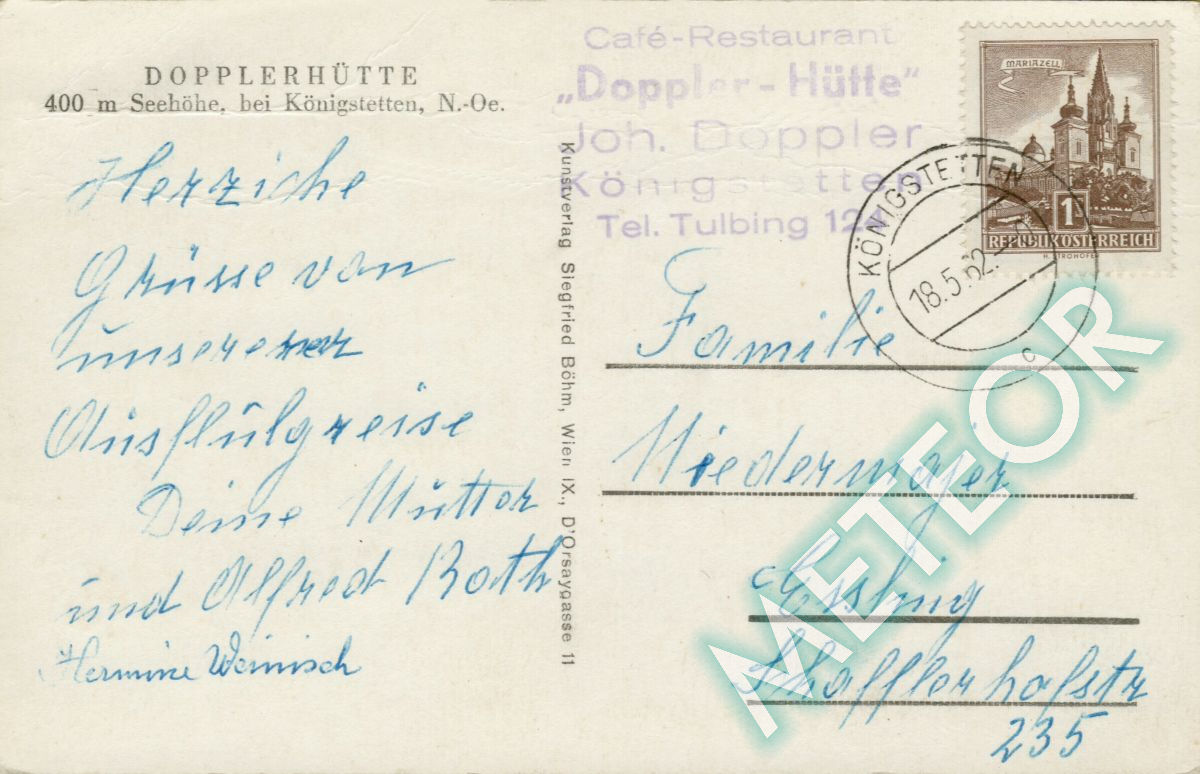 DOPPLERHÜTTE
400 m Seehöhe, bei Königstetten, N.-Oe.
Herziche
Grüsse von
unserer
Ausflulgreise
Deine Mutter
und Alfred Roth
Hermine Weinisch
Kunstverlag Siegfried Böhm, Wien IX., D'Orsaygasse 11
Café-Restaurant
„Doppler-Hütte"
Joh. Doppler
Königstetten
Tel. Tulbing 124
MARIAZELL
1S
REPUBLIK ÖSTERREICH
H. STROHOFER
KÖNIGSTETTEN
18.5.62.
c
Familie
Niedermajer
Essling
Schafflerhofstr
235
METEOR